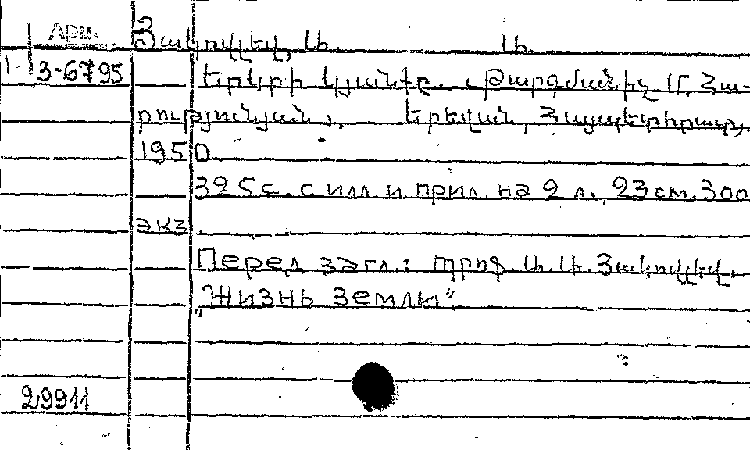 Арм.
Յակովլեվ, Ա. Ա.
3-6795
Երկրի կյանքը. Թարգմանիչ Մ. Հա-
րությունյան, Երեվան, Հայպետհրատ,
1950
325с. с илл. и прил. на 2 л. 23см. 300
экз.
Перед загл.: Պրոֆ. Ա. Ա. Յակովլեվ.
„Жизнь земли“
29911